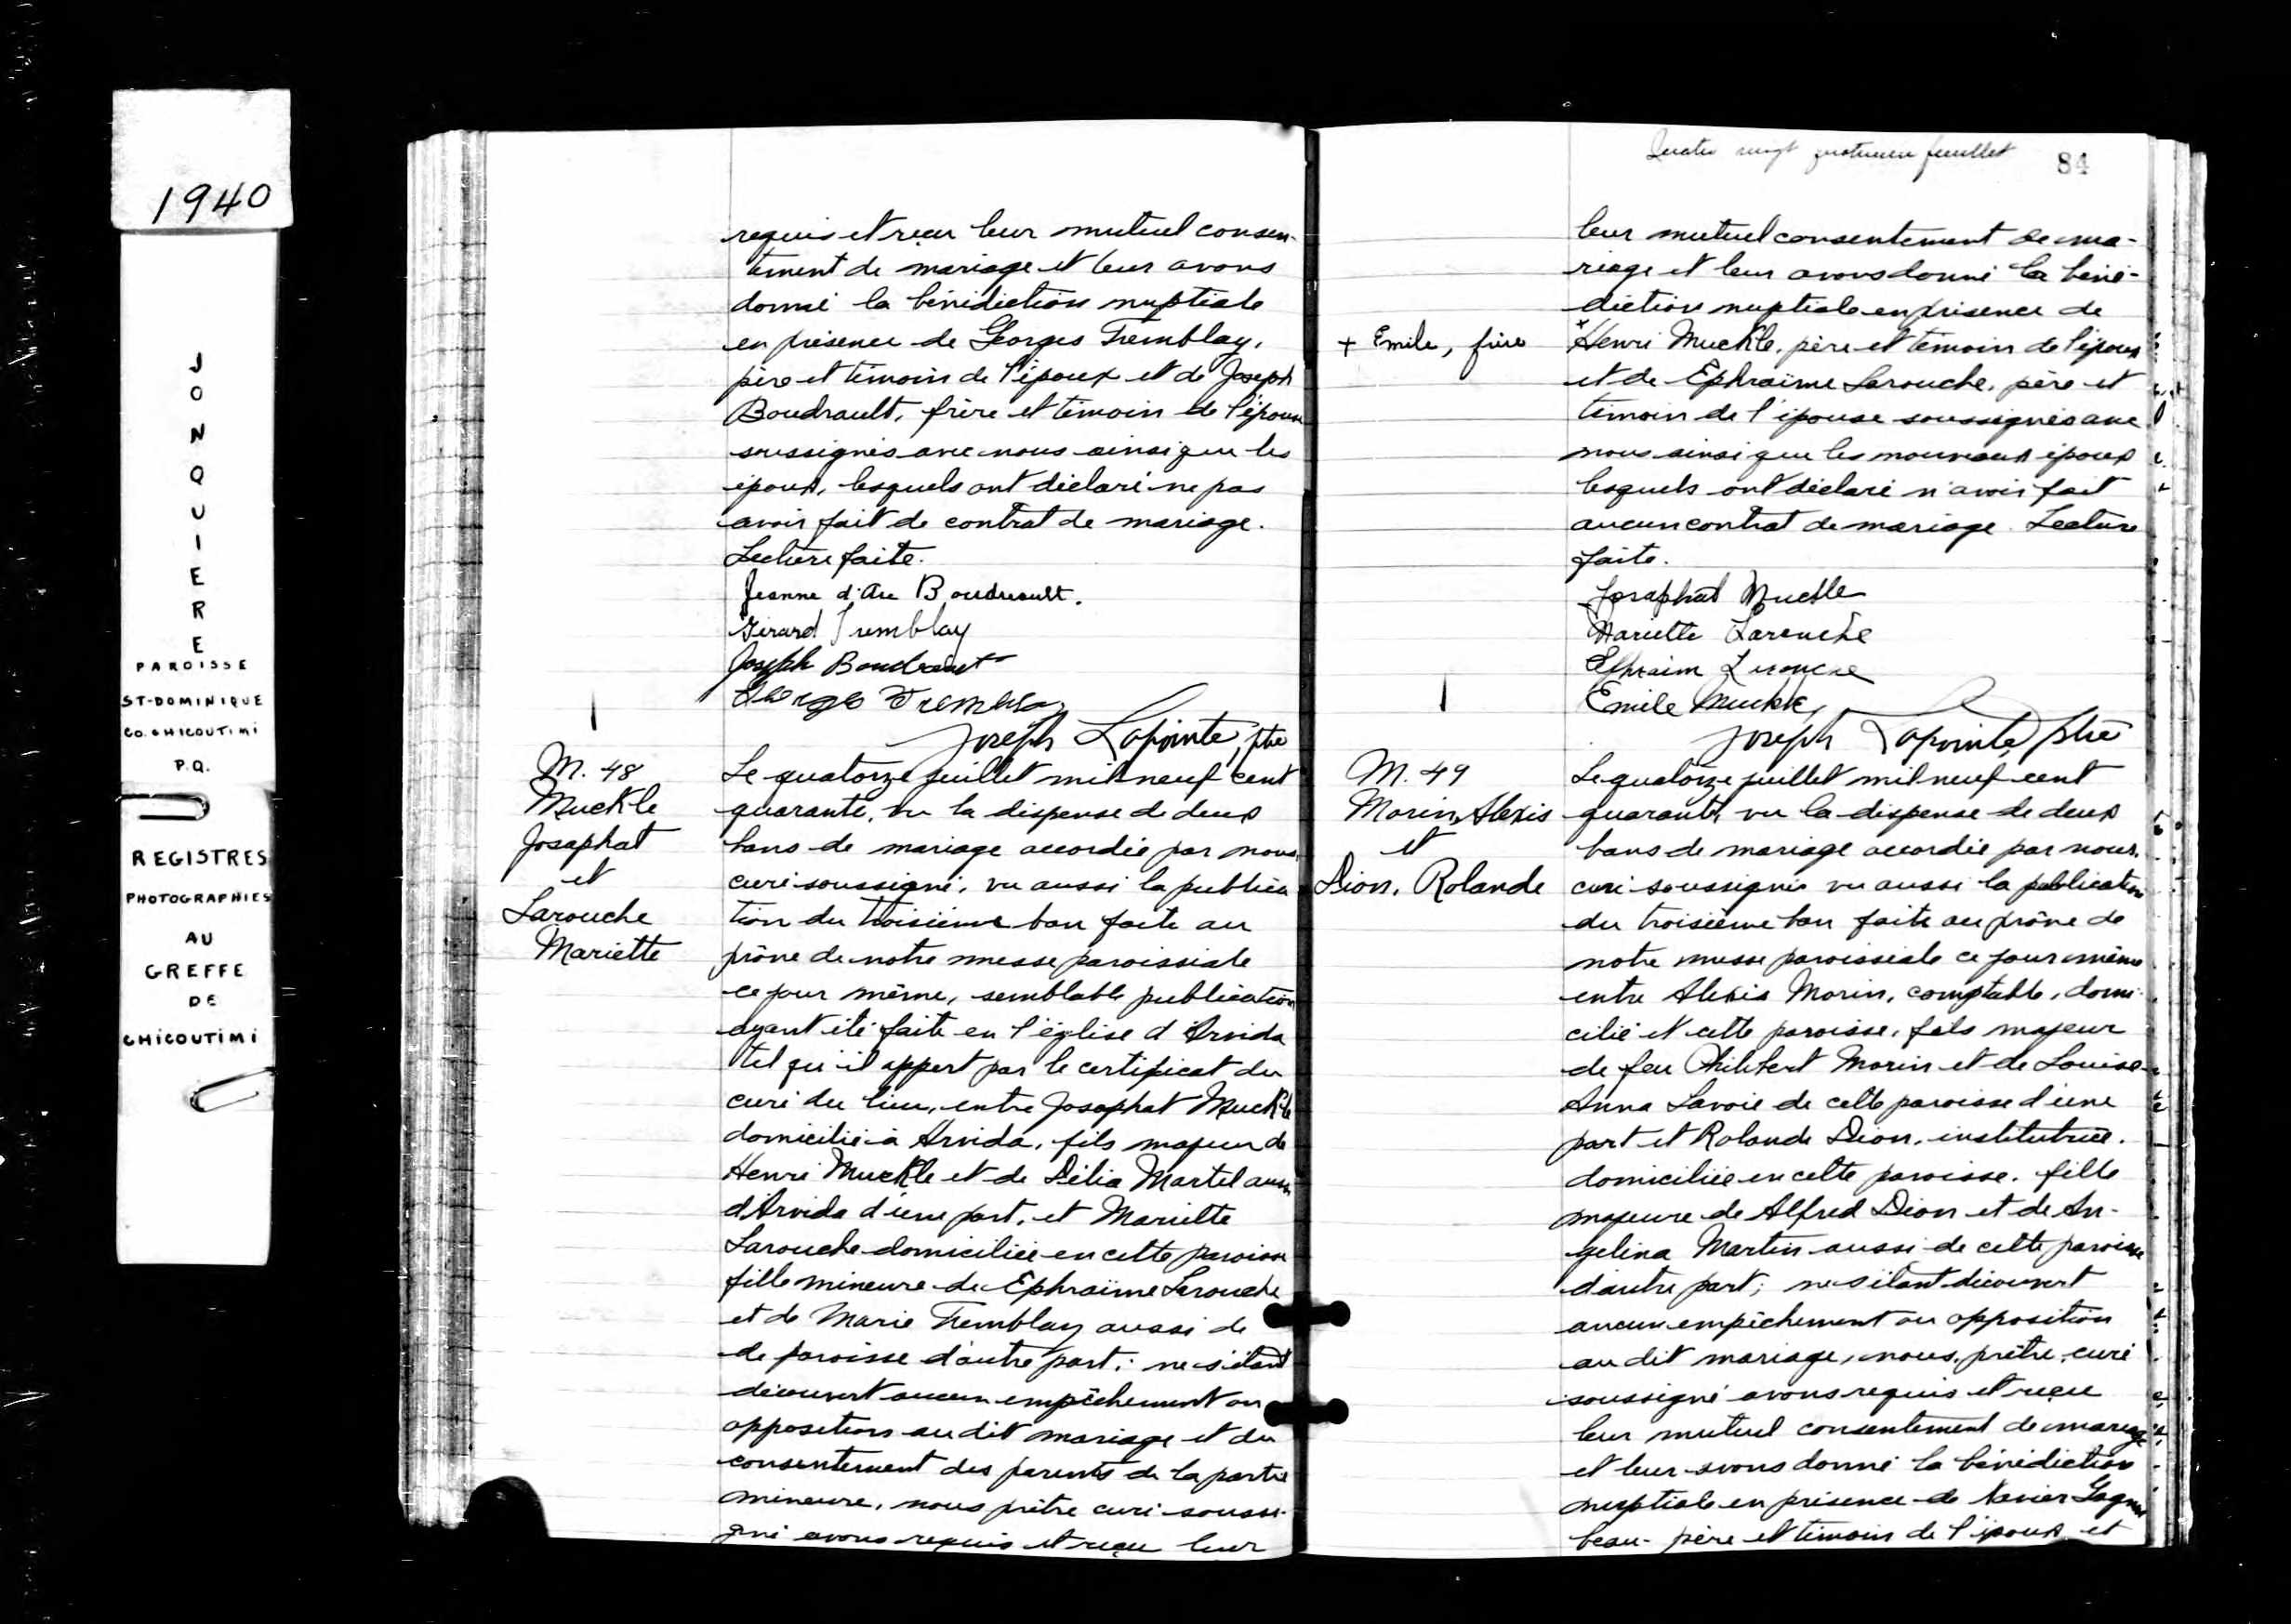 1940
JONQUIERE
PAROISSE
ST-DOMINIQUE
CO. CHICOUTIMI
P.Q.
REGISTRES
PHOTOGRAPHIES
AU
GREFFE
DE
CHICOUTIMI
requis et reçu leur mutuel consen-
tement de mariage et leur avons
donné la bénédiction nuptiale
en présence de Georges Tremblay,
père et témoin de l'époux et de Joseph
Boudrault, frère et témoin de l'épouse
soussignés avec nous ainsi que les
époux, lesquels ont déclaré ne pas
avoir fait de contrat de mariage.
Lecture faite.
Jeanne d'Arc Boudreault.
Gérard Tremblay
Joseph Boudreault
George Tremblay
Joseph Lapointe, ptre
M. 48
Muckle
Josaphat
et
Larouche
Mariette
Le quatorze juillet mil neuf cent
quarante, vu la dispense de deux
bans de mariage accordée par nous
curé soussigné, vu aussi la publica
tion du troisième ban faite au
prône de notre messe paroissiale
ce jour même, semblable publication
ayant été faite en l'église d'Arvida
tel qu'il appert par le certificat du
curé du lieu, entre Josaphat Muckle
domicilié à Arvida, fils majeur de
Henri Muckle et de Délia Martel aussi
d'Arvida d'une part, et Mariette
Larouche domiciliée en cette paroisse
fille mineure de Ephraïme Larouche
et de Marie Tremblay aussi de
de paroisse d'autre part; ne s'étant
découvert aucun empêchement ou
opposition au dit mariage et du
consentement des parents de la partie
mineure, nous prêtre curé soussi-
gné avons requis et reçu leur
Quatre vingt quatrième feuillet 84
leur mutuel consentement de ma-
riage et leur avons donné la béné-
diction nuptiale en présence de
+ Emile, frère
*Henri Muckle, père et témoin de l'époux
et de Ephraïme Larouche, père et
témoin de l'épouse soussignés avec
nous ainsi que les nouveaux époux
lesquels ont déclaré n'avoir fait
aucun contrat de mariage. Lecture
faite.
Josaphat Muckle
Mariette Larouche
Ephraim Larouche
Emile Muckle
Joseph Lapointe ptre
M. 49
Morin, Alexis
et
Dion, Rolande
Le quatorze juillet mil neuf cent
quarante, vu la dispense de deux
bans de mariage accordée par nous,
curé soussigné vu aussi la publication
du troisième ban faite au prône de
notre messe paroissiale ce jour même
entre Alexis Morin, comptable, domi-
cilié et cette paroisse, fils majeur
de feu Philibert Morin et de Louise-
Anna Lavoie de cette paroisse d'une
part et Rolande Dion, institutrice,
domiciliée en cette paroisse, fille
majeure de Alfred Dion et de An-
gelina Martin aussi de cette paroisse
d'autre part; ne s'étant découvert
aucun empêchement ou opposition
au dit mariage, nous, prêtre, curé
soussigné avons requis et reçu
leur mutuel consentement de mariage
et leur avons donné la bénédiction
nuptiale en présence de Xavier Gagnon
beau-père et témoin de l'époux et